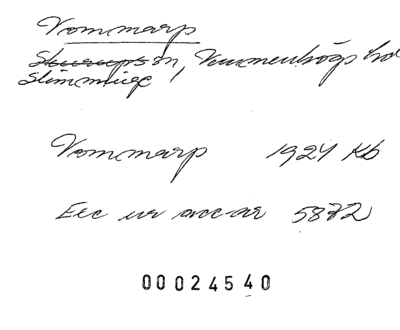 Vommarp
Skurups sn, Vemmenhögs hd
Slimminge
Vommarp 1924 Kb
Exc ur acc ar 5872
00024540